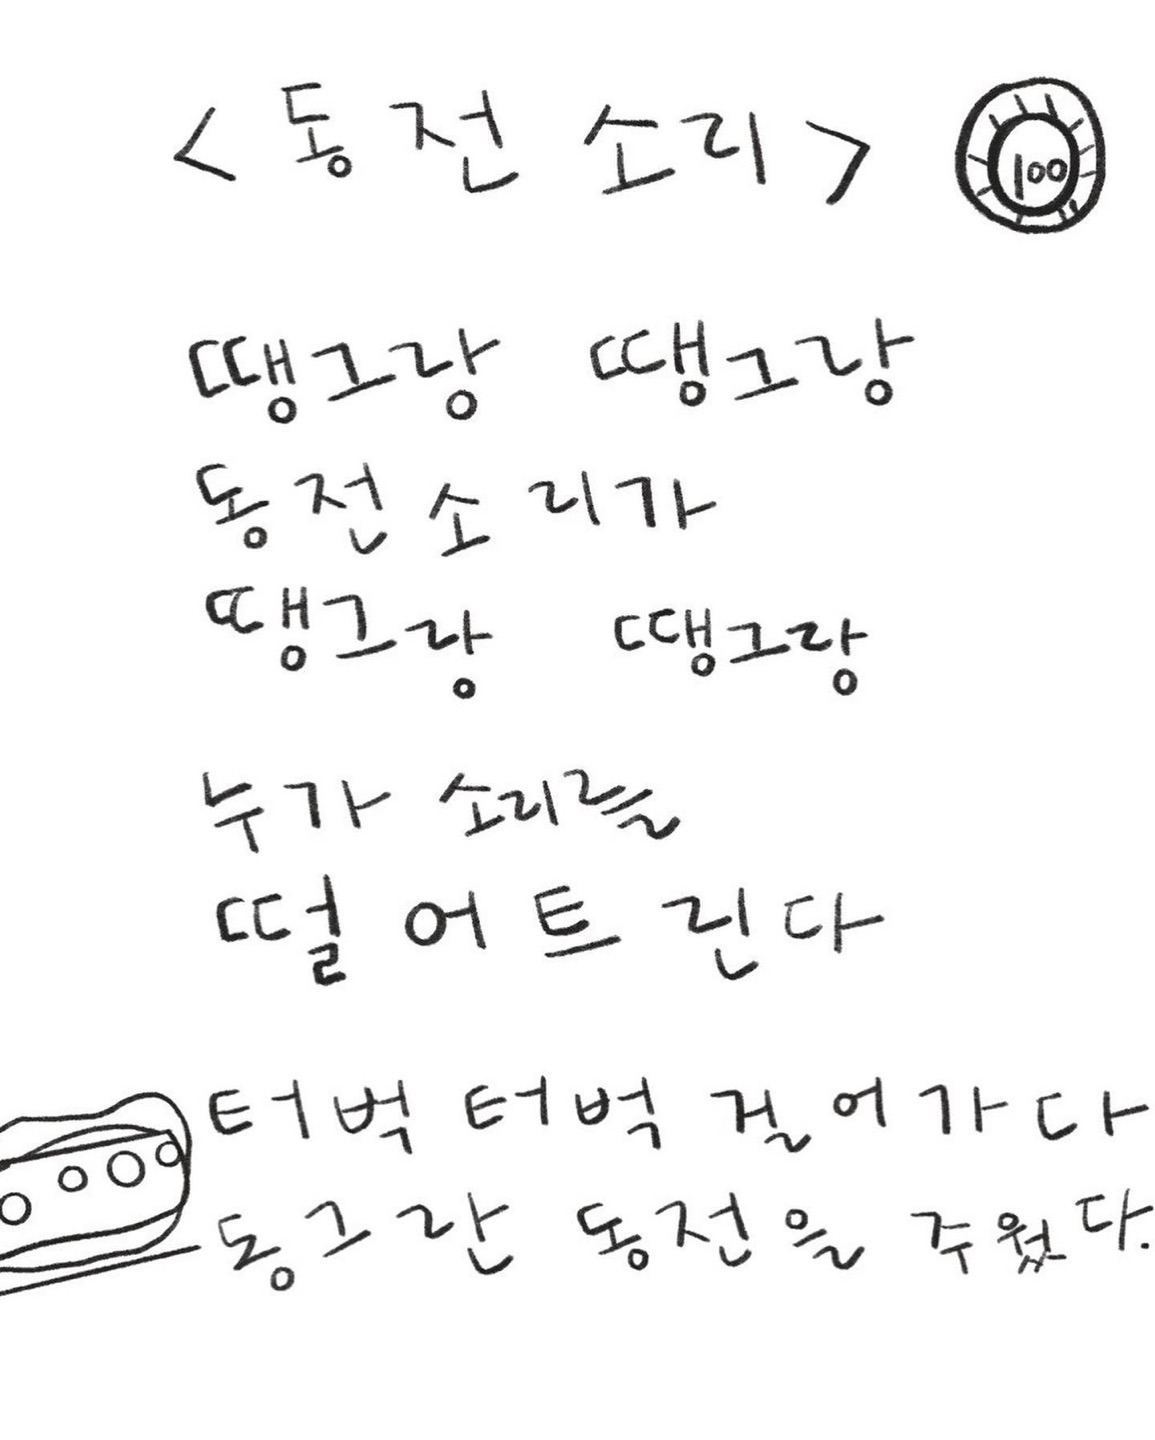 <동전 소리>
100
땡그랑 땡그랑
동전소리가
땡그랑 땡그랑
누가 소리를
떨어트린다
터벅터벅 걸어가다
동그란 동전을 주웠다.